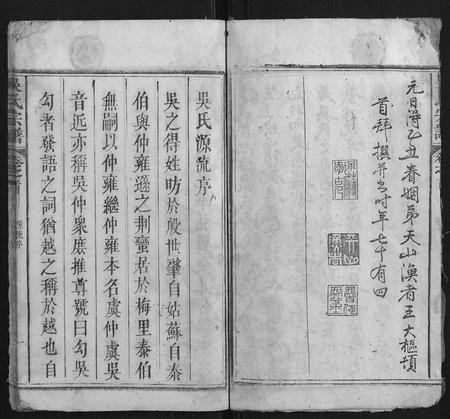 元日得乙丑春姻弟天山演者王大樞頓
首拜撰並書時年七十有四
吳氏源流序
吳之得姓昉於殷世肇自姑蘇自泰
伯與仲雍遜之荆蠻居於梅里泰伯
無嗣以仲雍繼仲雍本名虞仲虞吳
音近亦稱吳仲衆庶推尊號曰勾吳
勾者發語之詞猶越之稱於越也自
吳氏宗譜
卷之首
源流序